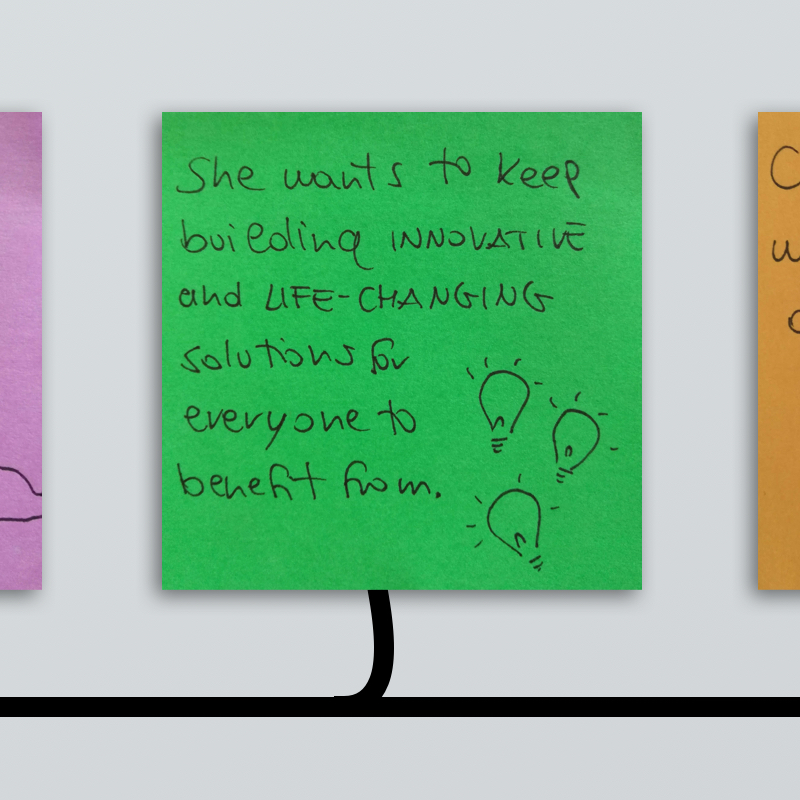 She wants to keep
building INNOVATIVE
and LIFE-CHANGING
solutions for
everyone to
benefit from.